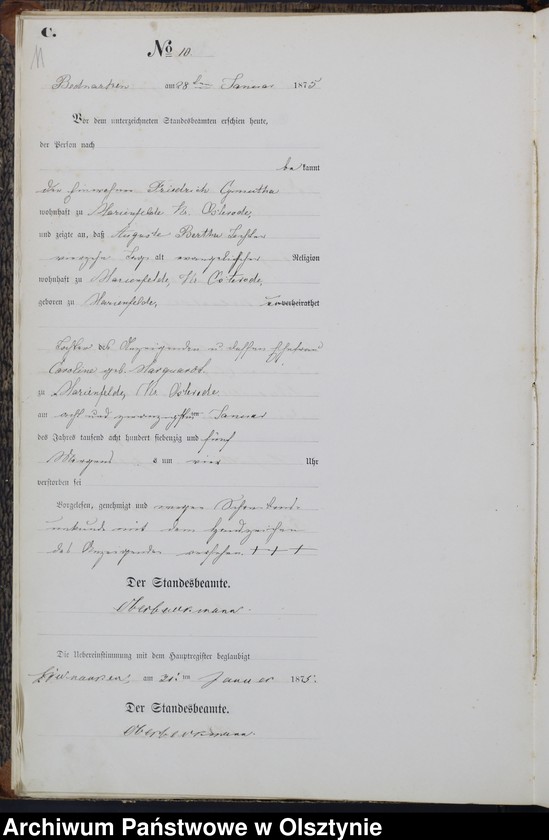 C.
11
No 10.
Bednarken am 28ten Januar 1875
Vor dem unterzeichneten Standesbeamten erschien heute,
der Person nach
bekannt
der Einwohner Friedrich
wohnhaft zu Marienfelde Kr. Osterode,
und zeigte an, daß Auguste Bertha
vierzehn Tage alt evangelischer Religion
wohnhaft zu Marienfelde, Kr. Osterode,
geboren zu Marienfelde, verheirathet
Tochter des Anzeigenden u. dessen Ehefrau
Caroline geb. Marquardt
zu Marienfelde, Kr. Osterode
am acht und zwanzigsten Januar
des Jahres tausend acht hundert siebenzig und fünf
Morgens um vier Uhr
verstorben sei
Vorgelesen, genehmigt und wegen Schreibens-
unkunde mit dem Handzeichen
des Anzeigenden versehen. + + +
Der Standesbeamte.
Die Uebereinstimmung mit dem Hauptregister beglaubigt
Bednarken, am Januar 1875.
Der Standesbeamte.
Archiwum Państwowe w Olsztynie